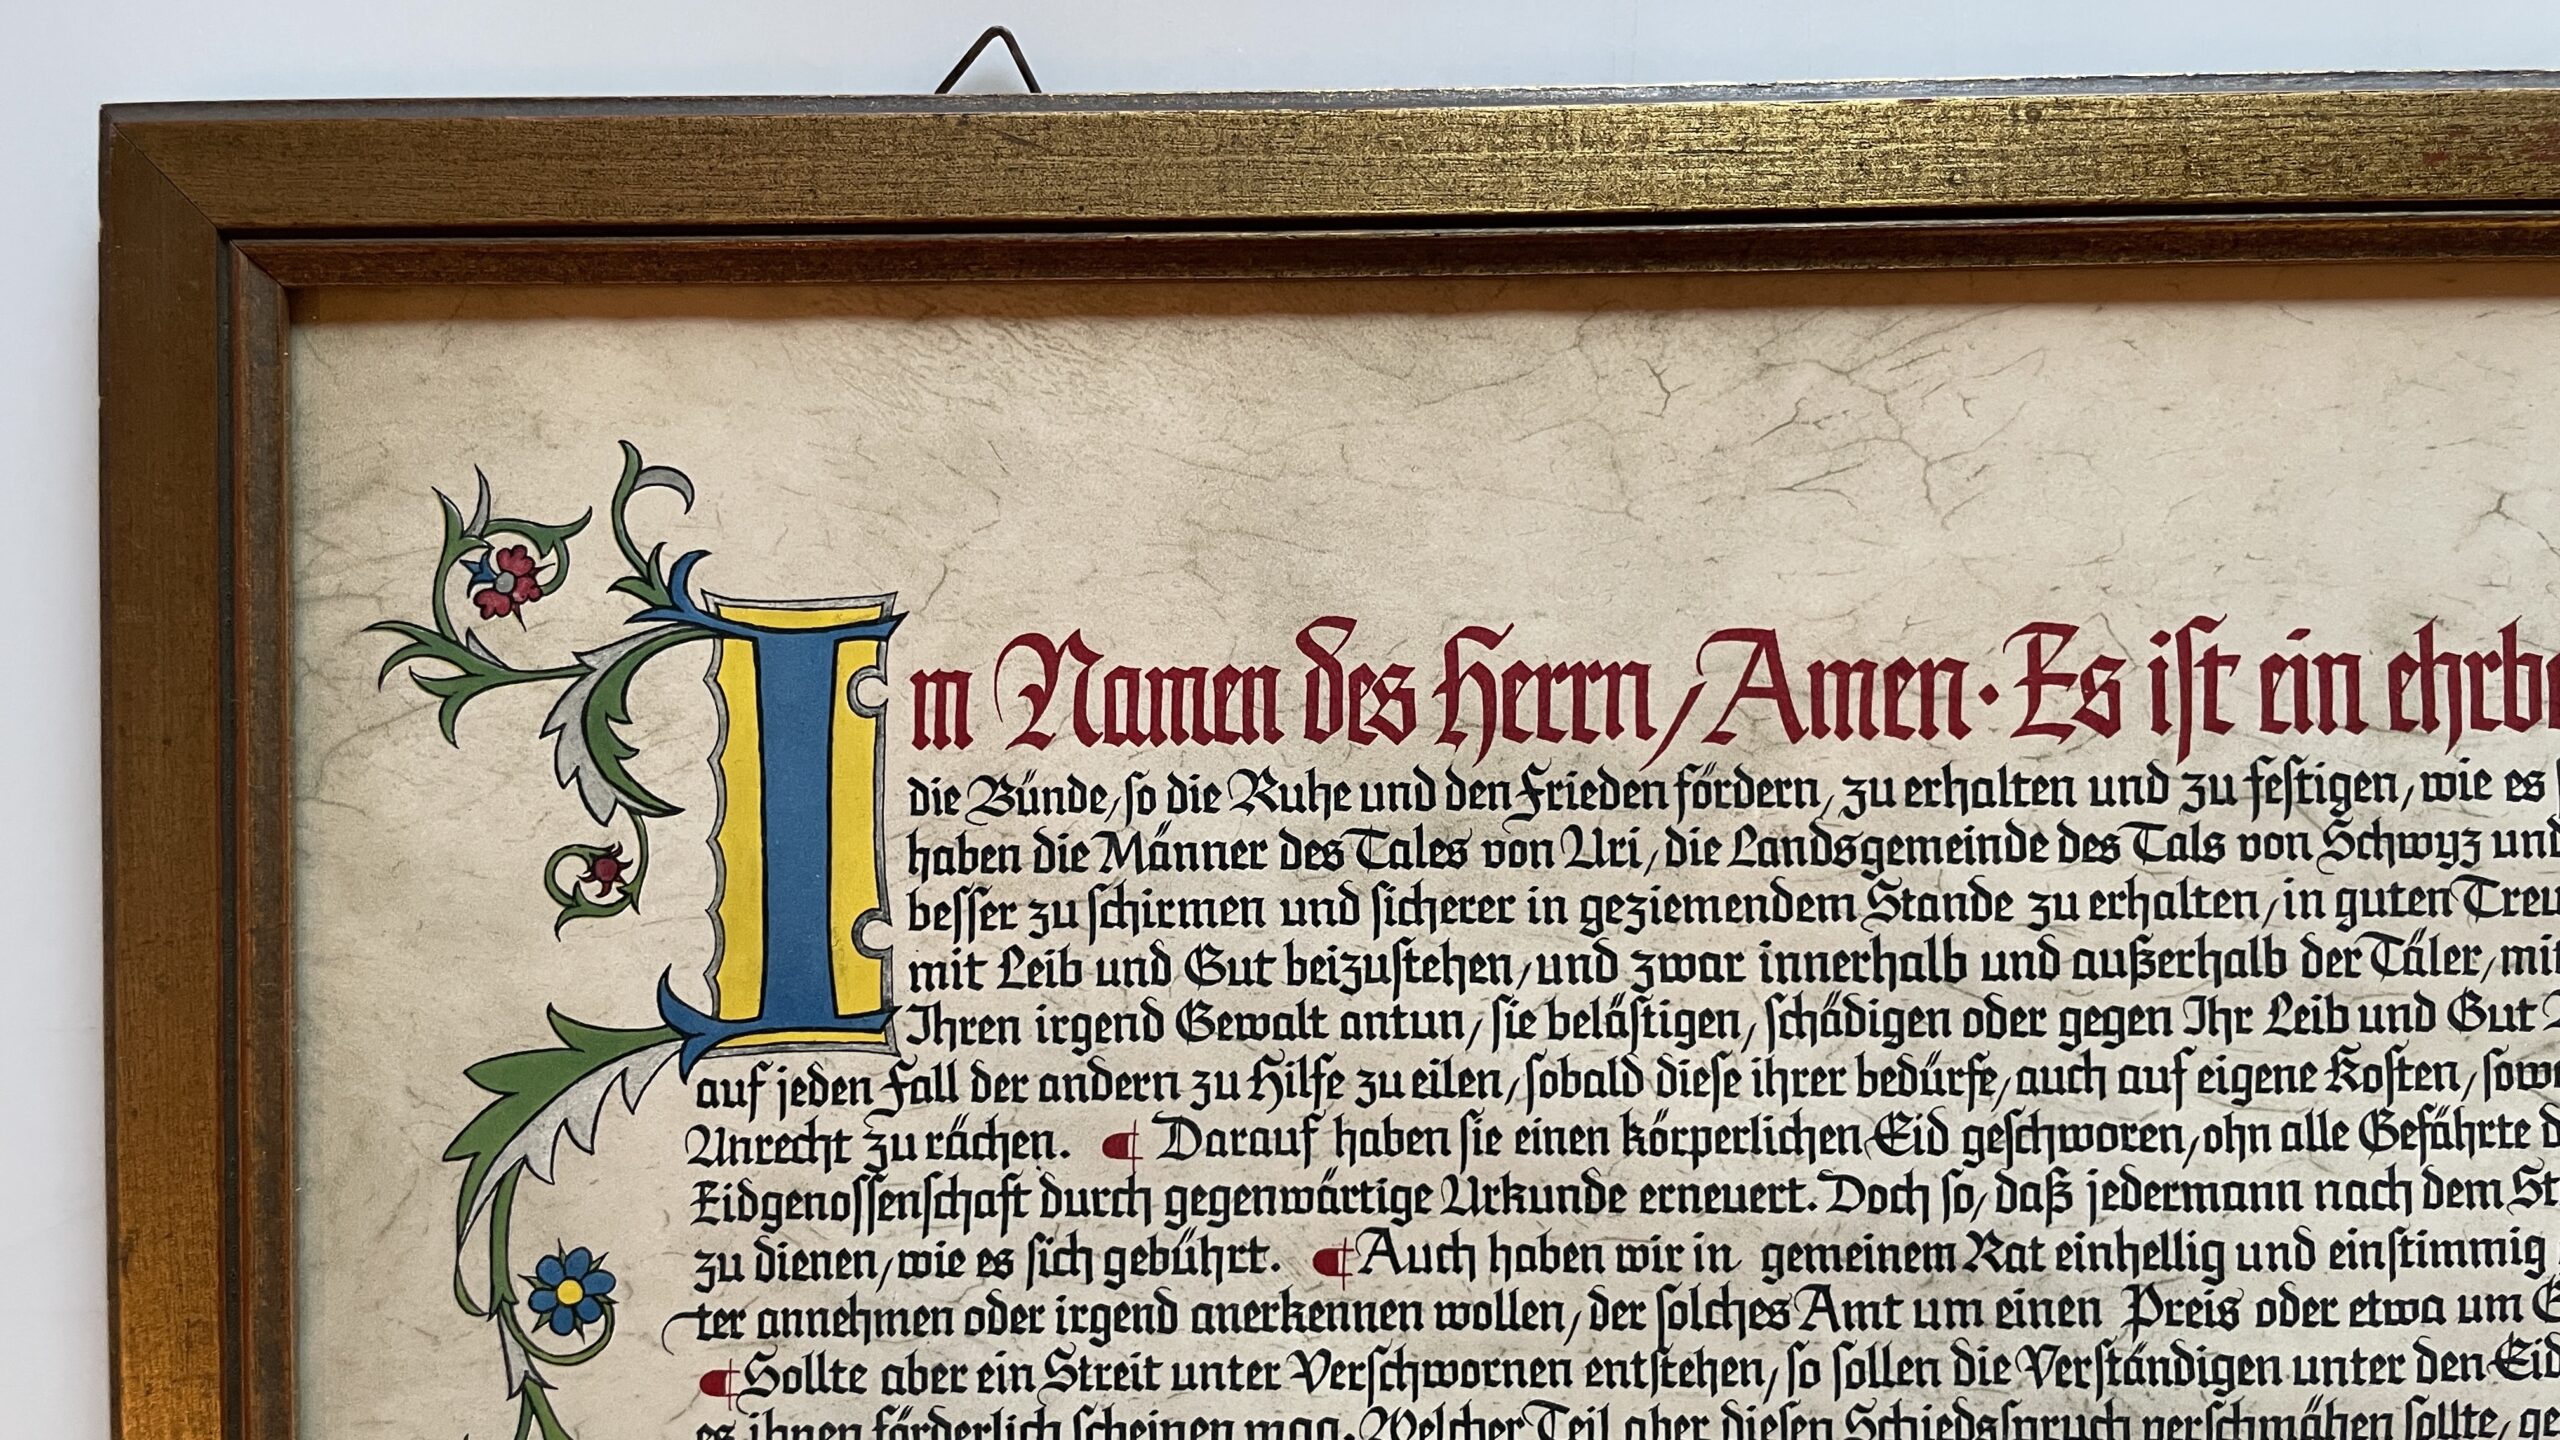 Im Namen des Herrn, Amen · Es ist ein
die Bünde, so die Ruhe und den Frieden fördern, zu erhalten und zu festigen, wie es
haben die Männer des Tales von Uri, die Landsgemeinde des Tals von Schwyz und
besser zu schirmen und sicherer in geziemendem Stande zu erhalten, in guten
mit Leib und Gut beizustehen, und zwar innerhalb und außerhalb der Täler, mit
Ihren irgend Gewalt antun, sie belästigen, schädigen oder gegen Ihr Leib und Gut
auf jeden Fall der andern zu Hilfe zu eilen, sobald diese ihrer bedürfe, auch auf eigene Kosten,
Unrecht zu rächen. ¶ Darauf haben sie einen körperlichen Eid geschworen, ohn alle Gefährte
Eidgenossenschaft durch gegenwärtige Urkunde erneuert. Doch so, daß jedermann nach dem
zu dienen, wie es sich gebührt. ¶ Auch haben wir in gemeinem Rat einhellig und einstimmig
ter annehmen oder irgend anerkennen wollen, der solches Amt um einen Preis oder etwa um
¶ Sollte aber ein Streit unter Verschwornen entstehen, so sollen die Verständigen unter den
es ihnen förderlich scheinen mag. Welcher Teil aber diesen Schiedsspruch verschmähen sollte,